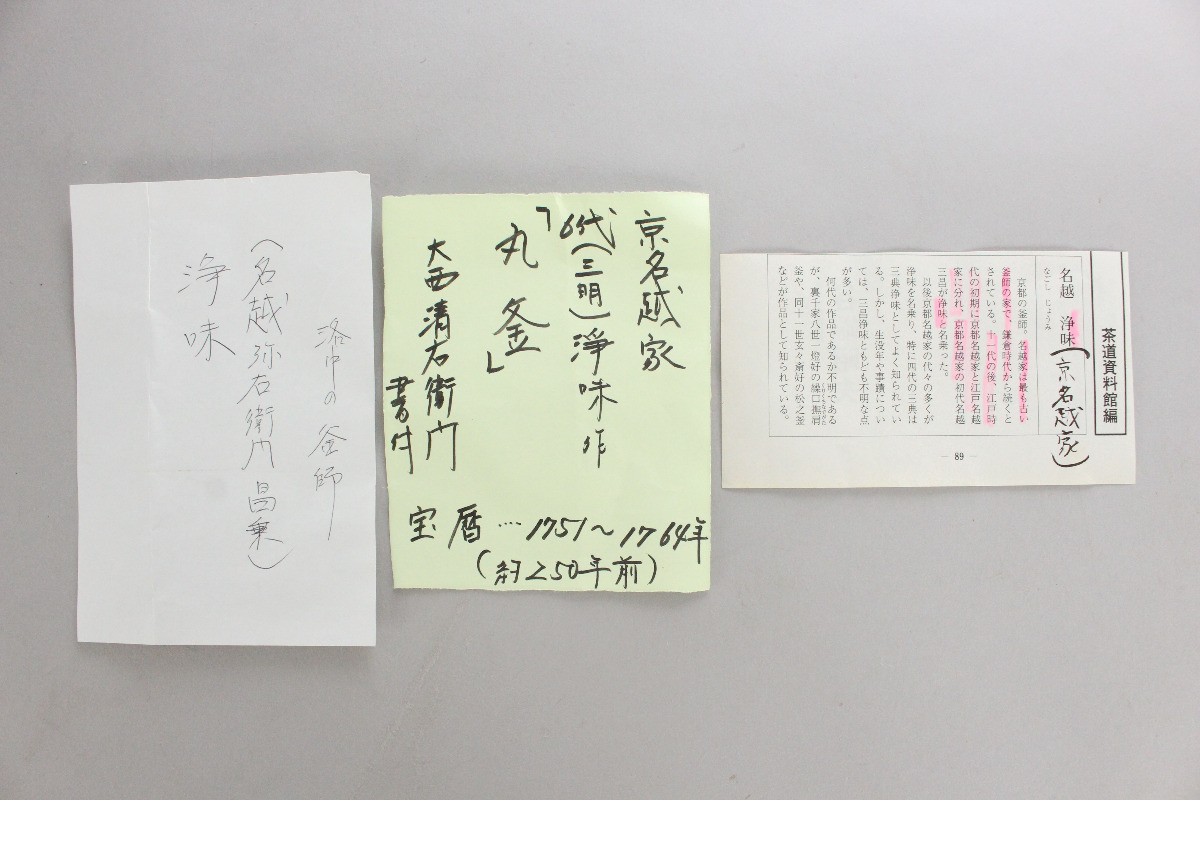 茶道資料館編
名越 浄味(京名越家)
なごし じょうみ
京都の釜師。名越家は最も古い
釜師の家で、鎌倉時代から続くと
されている。十一代の後、江戸時
代の初期に京都名越家と江戸名越
家に分れ、京都名越家の初代名越
三昌が浄味と名乗った。
以後京都名越家の代々の多くが
浄味を名乗り、特に四代の三典は
三典浄味としてよく知られてい
る。しかし、生没年や事蹟につい
ては、三昌浄味ともども不明な点
が多い。
何代の作品であるか不明である
が、裏千家八世一燈好の繰口撫肩
釜や、同十一世玄々斎好の松之釜
などが作品として知られている。
— 89 —
京名越家
6代(三明)浄味作
「丸釜」
大西清右衛門
書付
宝暦…1751〜1764年
(約250年前)
洛中の釜師
(名越弥右衛門昌乗)
浄味